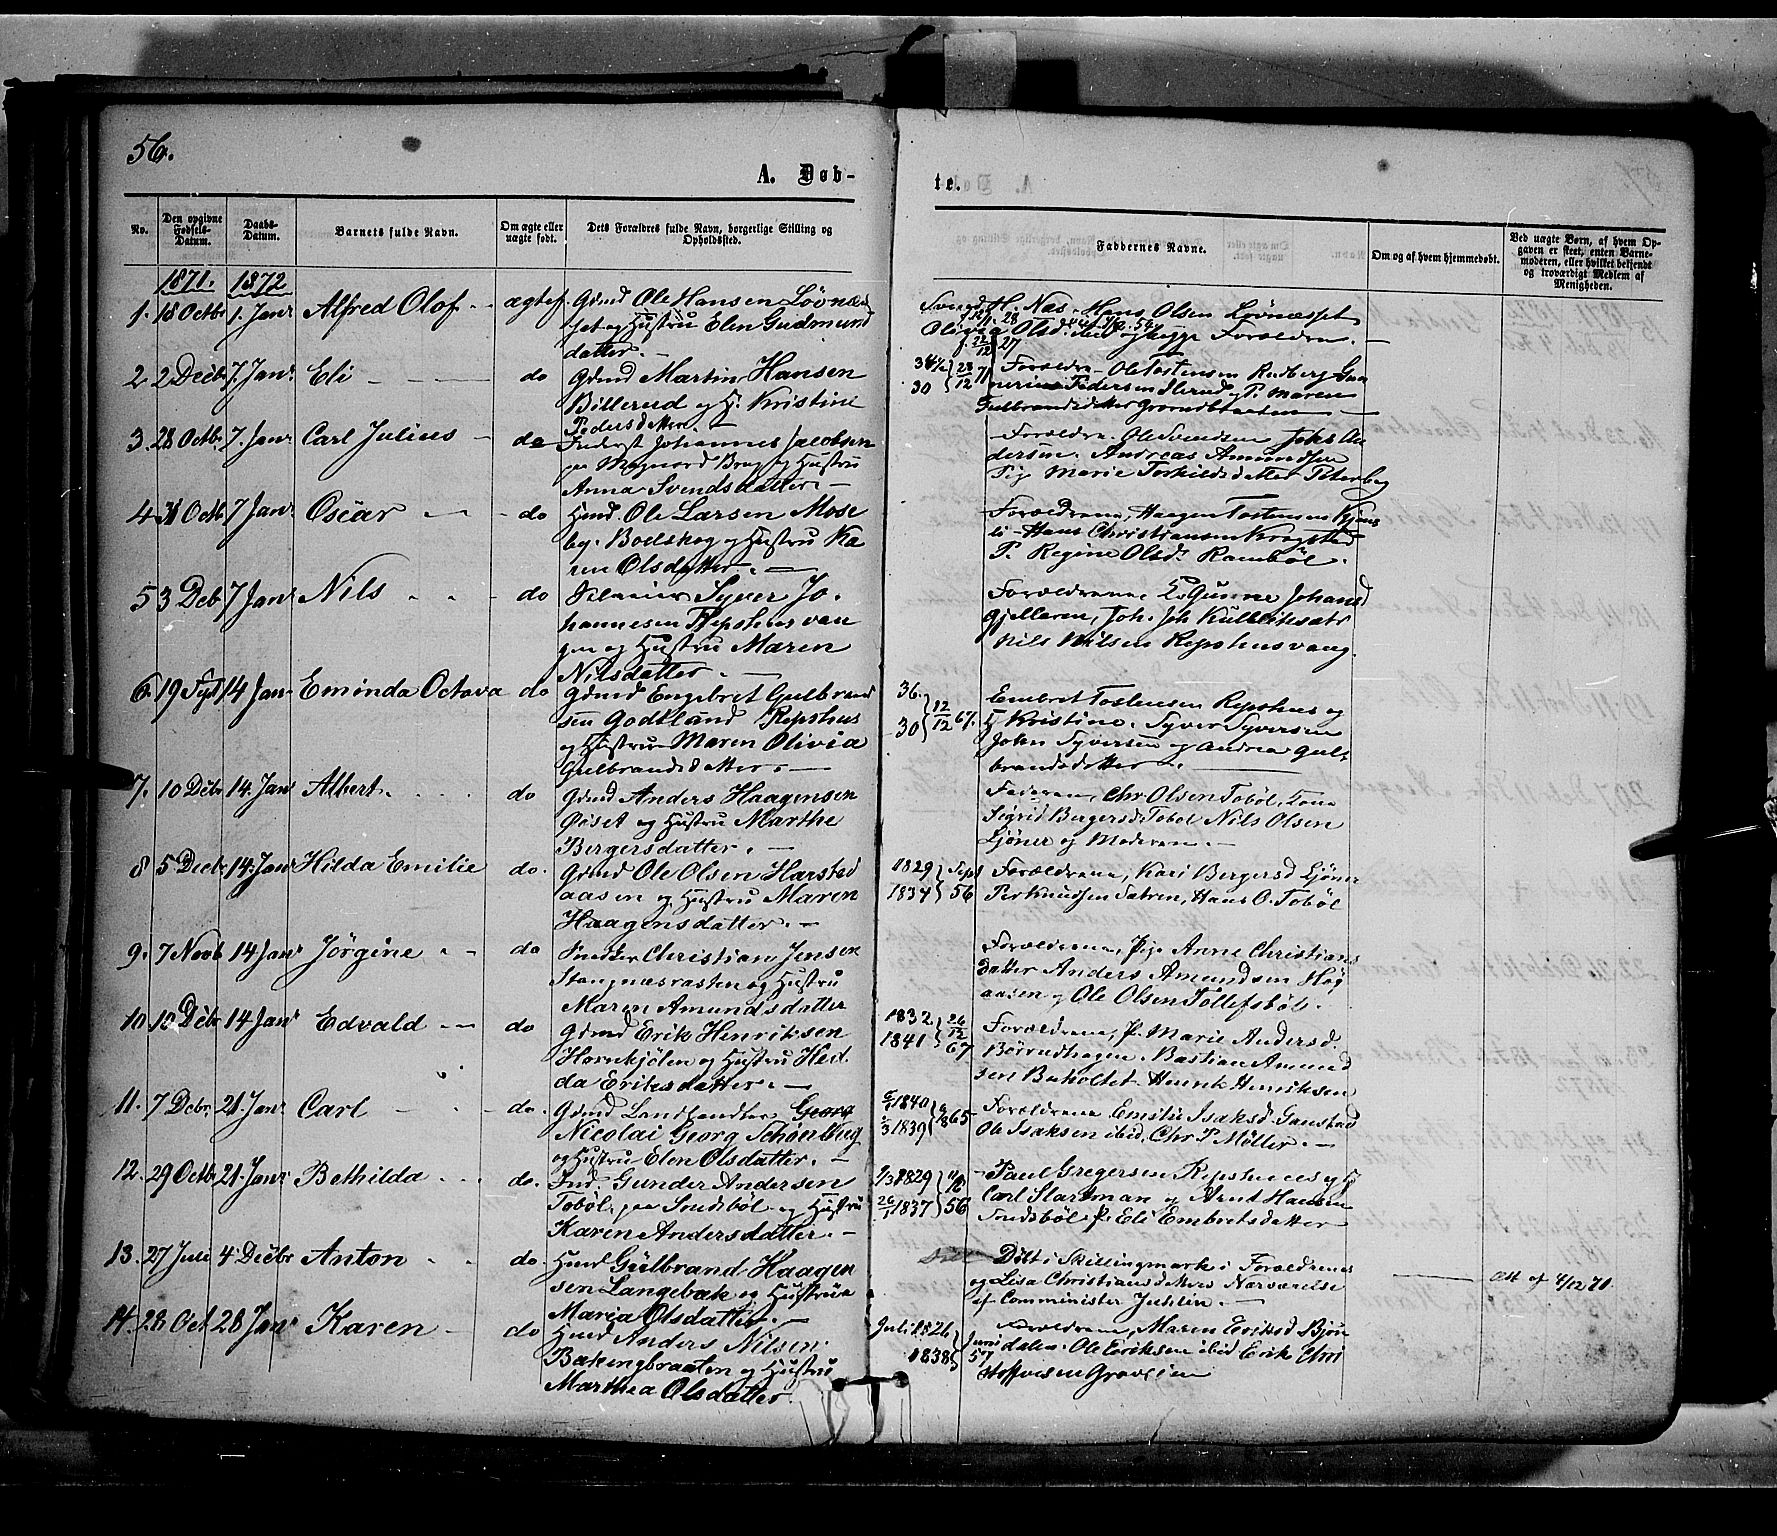 56.
A. Døb-
te.
No.
Den opgivne Fødsels-Datum.
Daabs-Datum.
Barnets fulde Navn.
Om ægte eller uægte født.
Dets Forældres fulde Navn, borgerlige Stilling og Opholdssted.
Faddernes Navne.
Om og af hvem hjemmedøbt.
Ved uægte Børn, af hvem Opgaven er skeet, enten Barnemoderen, eller hvilket bekjendt og troværdigt Medlem af Menigheden.
1871. 1872
1. 18 Octbr 1. Janr Alfred Olof ægtef. Grmd Ole Hansen Løvnæs
set og Hustru Elen Gudmund
datter.
Svend H. Næs. Hans Olsen Løvnæsset
Forældrene.
2 2 Decbr 7. Janr Eli do Grmd Martin Hansen
Billerud og H. Kristine
Pedersdatter
30
Forældr. Ole Tostensen Rudberg
Pedersen P. Maren
Gulbrandsdatter
3. 28 Octbr 7. Janr Carl Julius do Inderst Johannes Jacobsen
paa Magnord Brug og Hustru
Anna Svendsdatter.
Forældre. Ole Svendsen Johs An
dersen. Andreas Amundsen
Pig Marie Torkildsdatter
4 31 Octb 7 Janr Oscar do Husmd. Ole Larsen Mose
by. Bodskog og Hustru Ka
ren Olsdatter.
Forældrene, Haagen Tostensen
li - Hans Christiansen Krogstad
P. Regine Olsd. Rambøl.
5 3 Deb 7 Janr Nils do Syver Jo-
hannesen Repshusvan
gen og Hustru Maren
Nilsdatter.
Forældrene, Gunne Johansd
Gjelleren, Joh. Joh
Nils Nilsen Repshusvang.
6. 19 14 Jan Eminda Octava do Grmd Engebret Gulbrand
sen Godtland Repshus
og Hustru Maren Olivia
Gulbrandsdatter.
36.
30 12/12 67.
Embret Tostensen Repshus og
H Kristine. Syver Syversen
John Syversen og Andrea Gul-
brandsdatter.
7. 10 Debr 14. Jan Albert. do Grmd Anders Haagensen
Øiset og Hustru Marthe
Bergersdatter.
Faderen, Chr Olsen Tobøl, Kone
Sigrid Bergersd Tobøl Nils Olsen
Ljøner og Moderen.
8 5 Decbr 14. Jan Hilda Emilie do. Grmd Ole Olsen Harsted
aasen og Hustru Maren
Haagensdatter.
1829 Sept
1834 56
Forældrene, Kari Bergersd Ljøner
Per Knudsen Sætren, Hans O. Tobøl
9. 7 Novb 14 Jan Jörgine do Snedker Christian Jensen
Stangnæsrasten og Hustru
Maren Amundsdatter
Forældrene, Pige Anne Christians
datter Anders Amundsen Høg
aasen og Ole Olsen Tøllefsbøl.
10. 10 Debr 14 Janr Edvald do Grmd Erik Henriksen
Hornkjølen og Hustru Hed
da Eriksdatter.
1832 26/12
1841 67
Forældrene, P. Marie Andersd.
Børrudhagen. Bastian Amund
sen Buholtet. Henrik Henriksen
11. 7 Debr. 21 Janr Carl do. Grmd Landhandler Georg
Nicolai Georg Schønberg
og Hustru Elen Olsdatter.
1840
1839 1865
Forældrene Emilie Isaksd Gaustad
Ole Isaksen ibid, Chr P. Møller.
12. 29 Octb 21. Janr Bethilda do. Ind. Gunder Andersen
Tobøl, paa Sondsbøl og Hustru
Karen Andersdatter.
1829
1837 56
Paul Gregersen Repshus og H
Carl Startman og Arnt Hansen
Sondsbøl P. Eli Embretsdatter
13. 27 Juli 4 Decbr Anton do. Husmd Gulbrand Haagen
sen Langebæk og Hustru
Maria Olsdatter.
Døbt i Skillingmark i Forældrenes
og Lisa Christiansdatters Nærværelse
af Comminister Juhlin.
Att af 4/12 71.
14. 28 Oct 28 Janr Karen do Husmd Anders Nilsen
Bakengbraaten og Hustru
Marthea Olsdatter.
Juli 1826 Juni
1838 57
Forældrene, Maren Eriksd Bjøn
dalen. Ole Eriksen ibid Erik Chri
stoffersen